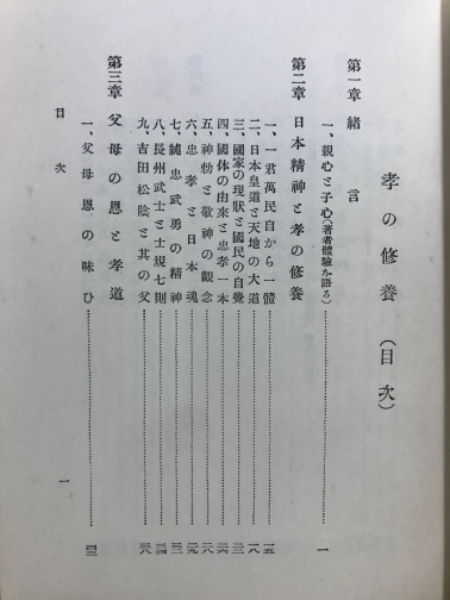 孝の修養（目次）
第一章 緒言
一、親心と子心（著者體驗か語る）……一
第二章 日本精神と孝の修養
一、一君萬民自から一體……一五
二、日本皇道と天地の大道……一八
三、國家の現狀と國民の自覺……二三
四、國体の由來と忠孝一本……二六
五、神勅と敬神の觀念……二八
六、忠孝と日本魂……二九
七、純忠武勇の精神……三二
八、長州武士と士規七則……三四
九、吉田松陰と其の父……三八
第三章 父母の恩と孝道
一、父母恩の味ひ……四三
目次 一